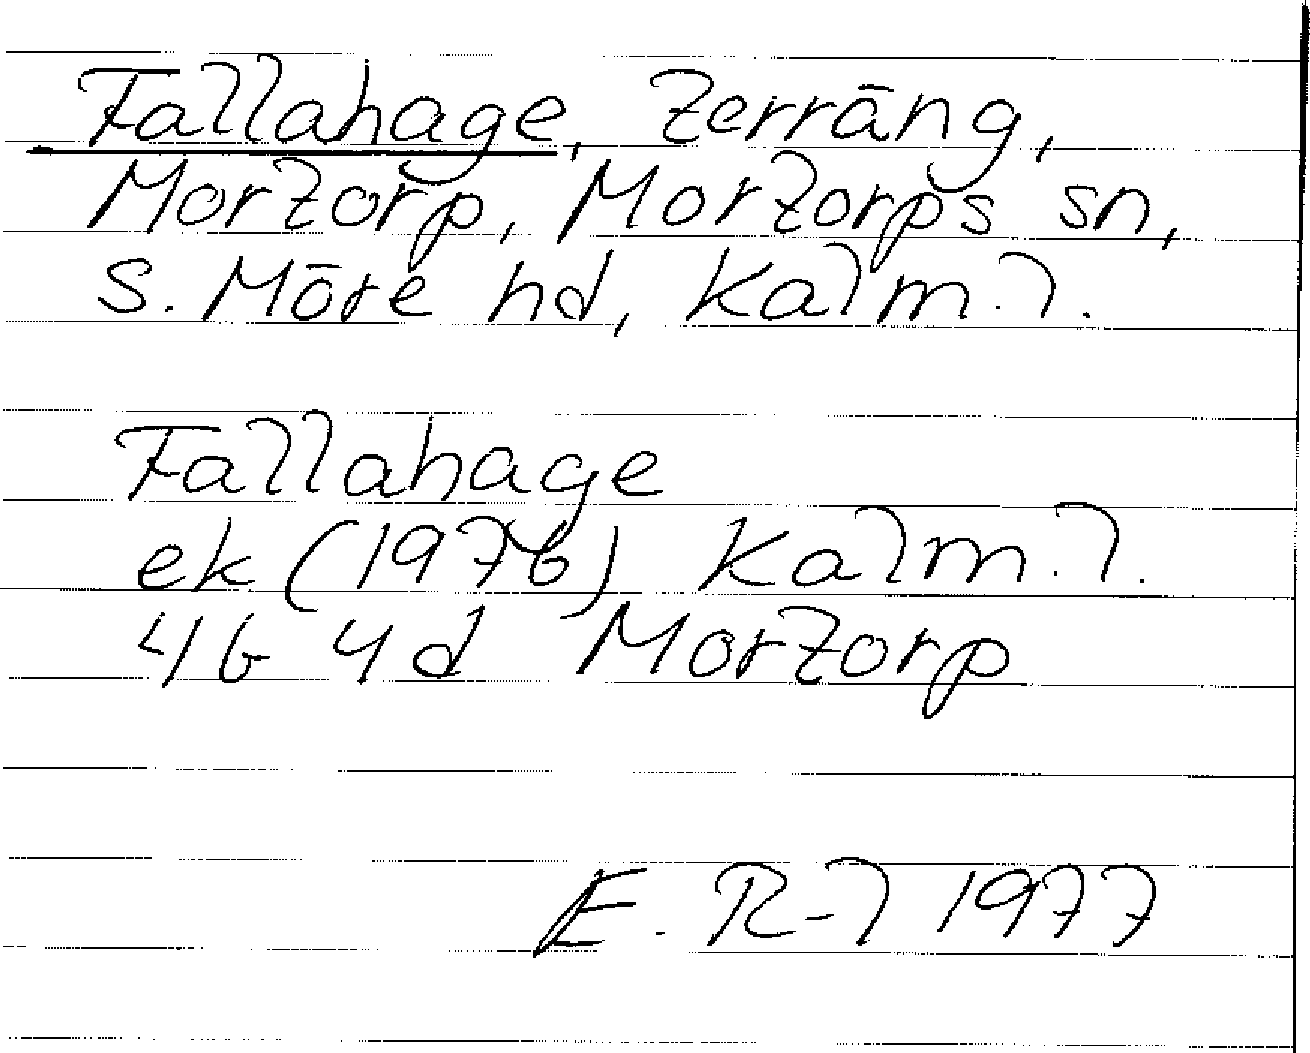 Fallahage, terräng,
Mortorp, Mortorps sn,
S. Möre hd, Kalm. l.
Fallahage
ek (1976) Kalm. l.
4G 4d Mortorp
E. R-l 1977